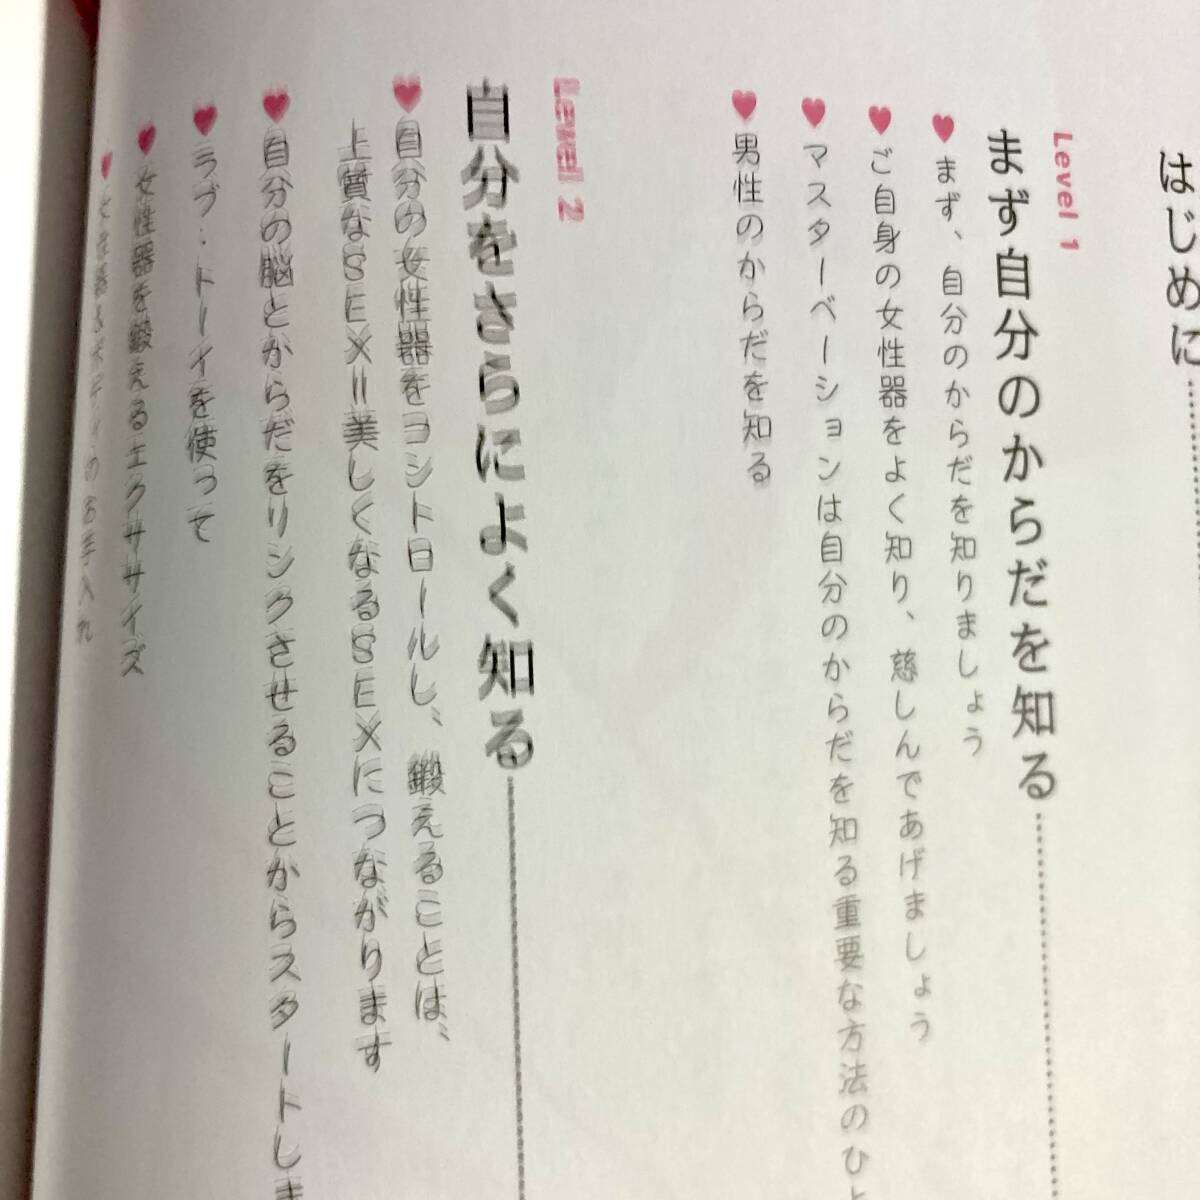 はじめに
Level 1
まず自分のからだを知る
まず、自分のからだを知りましょう
ご自身の女性器をよく知り、慈しんであげましょう
マスターベーションは自分のからだを知る重要な方法のひと
男性のからだを知る
Level 2
自分をさらによく知る
自分の女性器をコントロールし、鍛えることは、
上質なSEX=美しくなるSEXにつながります
自分の脳とからだをリンクさせることからスタートしま
ラブ・トーイを使って
女性器を鍛えるエクササイズ
女性器&ボディのお手入れ